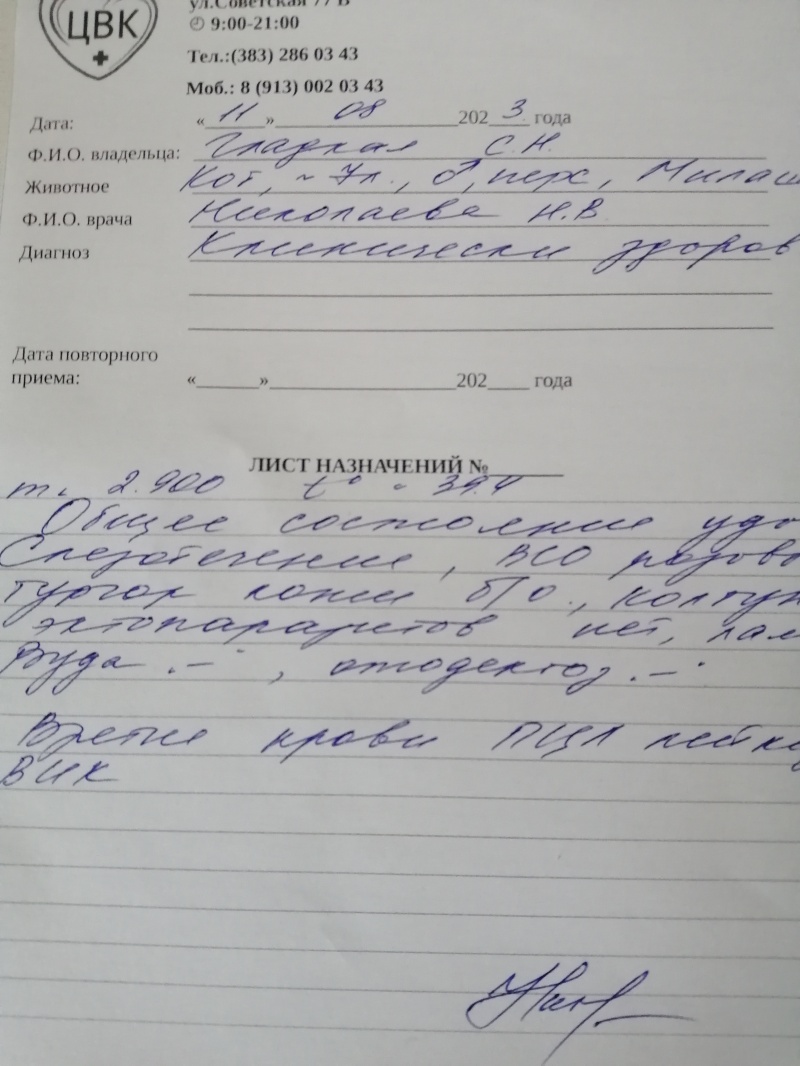 ЦВК
ул.Советская 77 В
9:00-21:00
Тел.:(383) 286 03 43
Моб.: 8 (913) 002 03 43
Дата: «11» 08 2023 года
Ф.И.О. владельца: Гладкая С.Н.
Животное Кот, ~ 7л., ♂, перс, Милаш
Ф.И.О. врача Николаева Н.В.
Диагноз Клинически здоров
Дата повторного
приема: «______»__________________202____ года
ЛИСТ НАЗНАЧЕНИЙ №
m. 2.900 t° - 39.4
Общее состояние удо
Слезотечение, ВСО розово
тургор кожи б/о., колтун
эктопаразитов нет, лам
Вуда .-, отодектоз.-
Взятие крови ПЦР лейко
ВИК